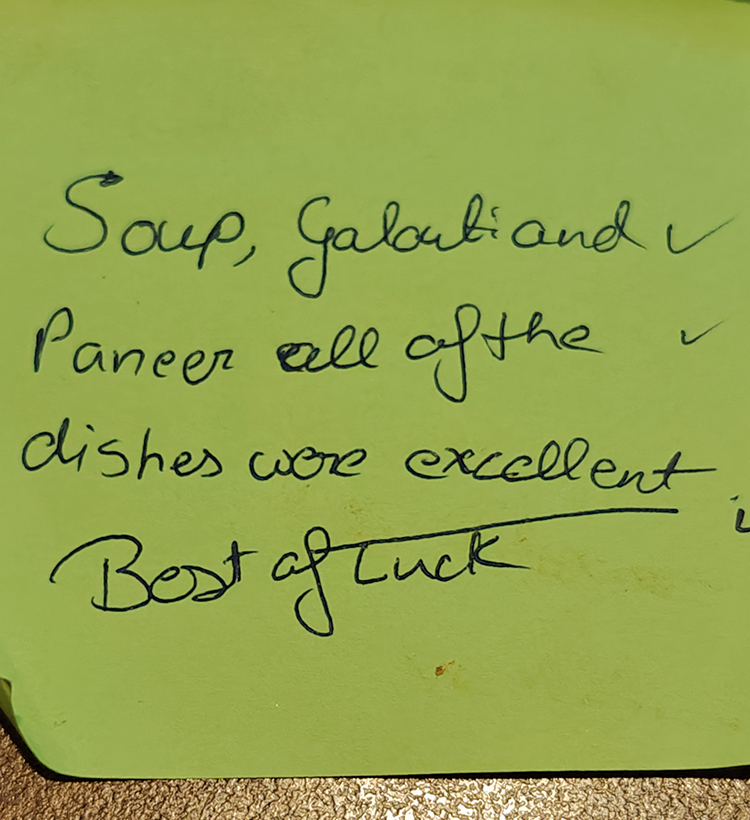 Soup, Galouti and ✓
Paneer all of the ✓
dishes were excellent
Best of Luck